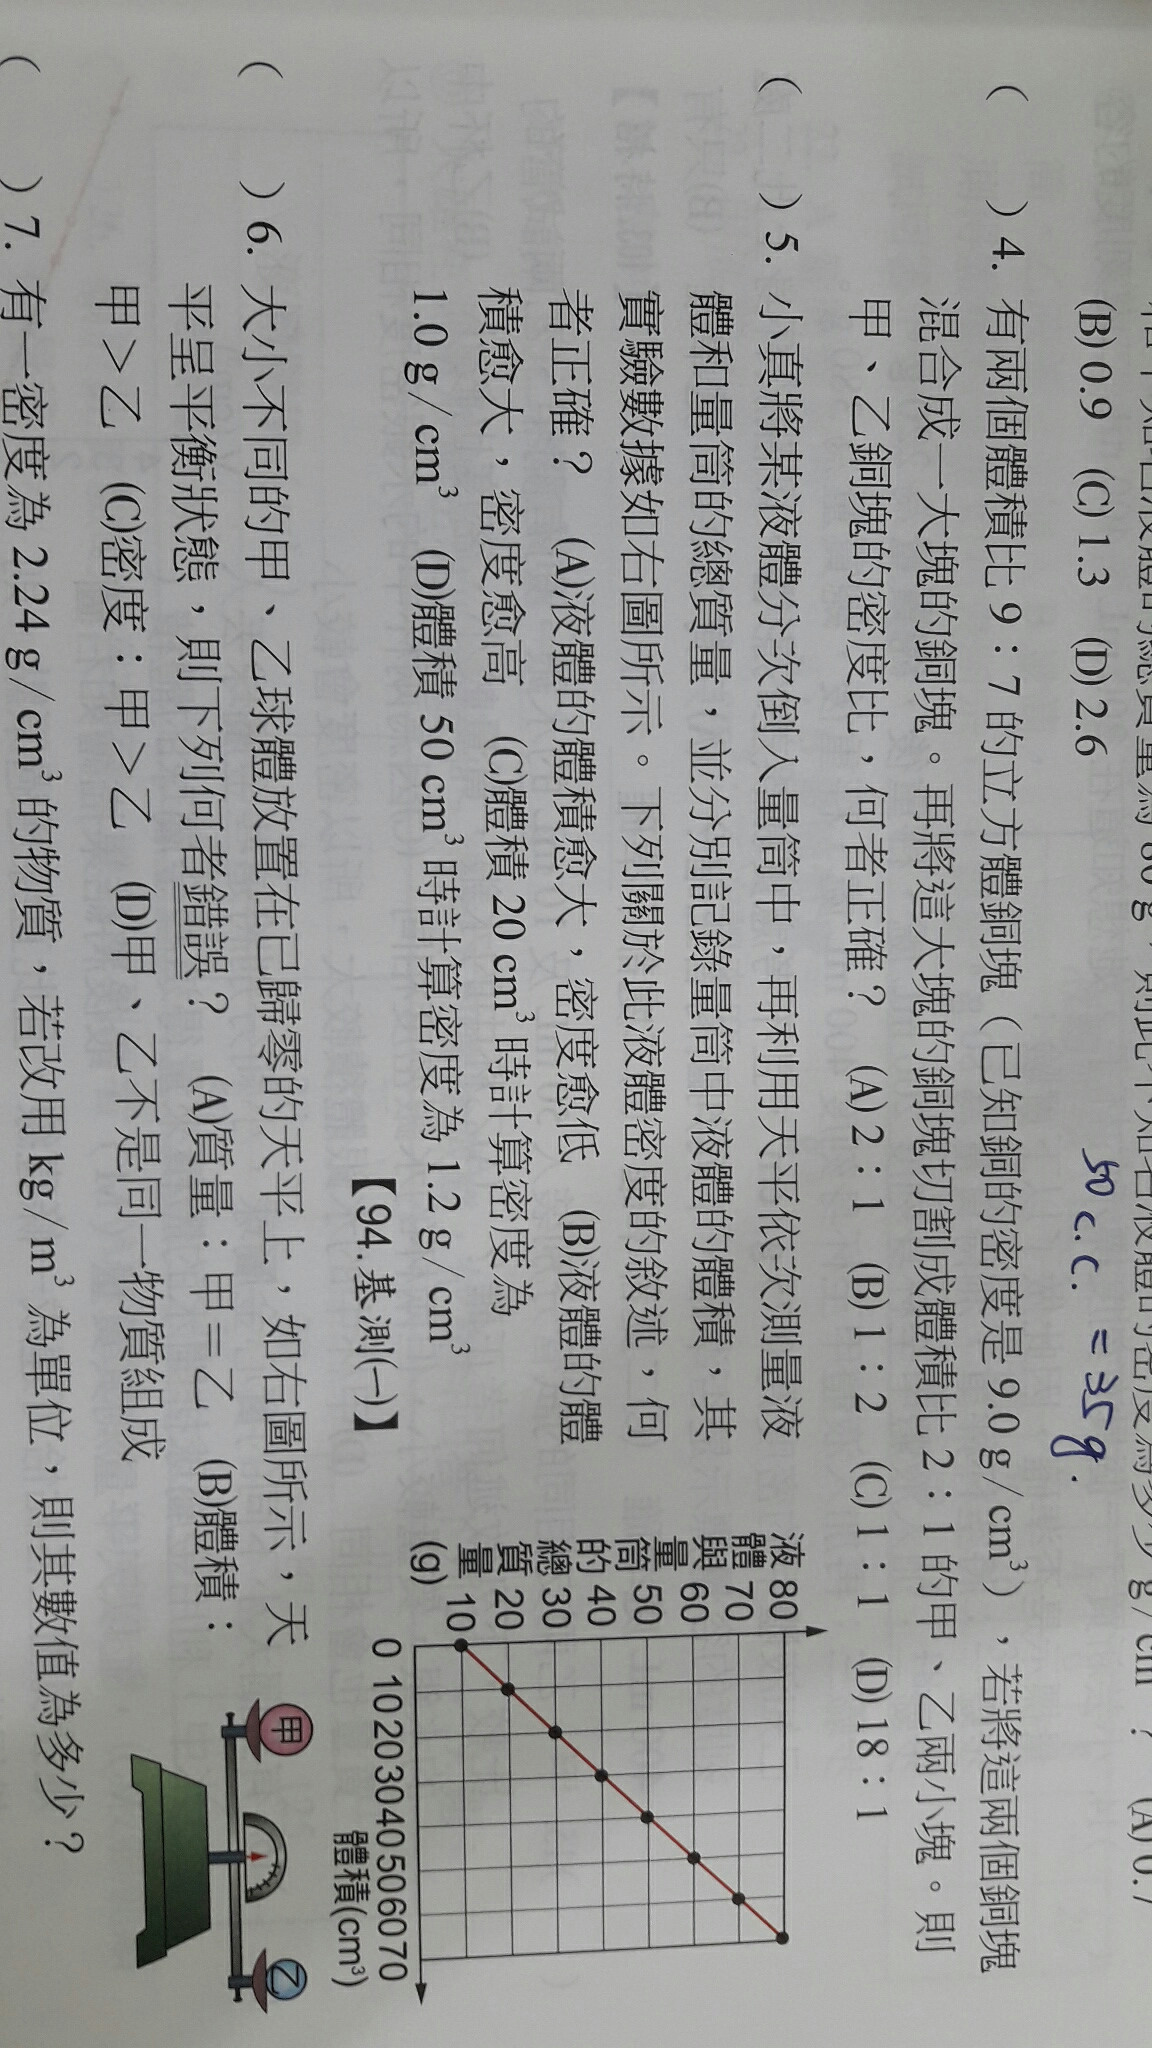 (B) 0.9 (C) 1.3 (D) 2.6
50 c.c. = 35g.
( ) 4. 有兩個體積比 9：7 的立方體銅塊（已知銅的密度是 9.0 g/cm³），若將這兩個銅塊
混合成一大塊的銅塊。再將這大塊的銅塊切割成體積比 2：1 的甲、乙兩小塊。則
甲、乙銅塊的密度比，何者正確？ (A) 2：1 (B) 1：2 (C) 1：1 (D) 18：1
( ) 5. 小真將某液體分次倒入量筒中，再利用天平依次測量液
體和量筒的總質量，並分別記錄量筒中液體的體積，其
實驗數據如右圖所示。下列關於此液體密度的敘述，何
者正確？ (A)液體的體積愈大，密度愈低 (B)液體的體
積愈大，密度愈高 (C)體積 20 cm³ 時計算密度為
1.0 g/cm³ (D)體積 50 cm³ 時計算密度為 1.2 g/cm³
【94.基測(一)】
液體與量筒的總質量(g)
80
70
60
50
40
30
20
10
0 10 20 30 40 50 60 70
體積(cm³)
( ) 6. 大小不同的甲、乙球體放置在已歸零的天平上，如右圖所示，天
平呈平衡狀態，則下列何者錯誤？ (A)質量：甲＝乙 (B)體積：
甲＞乙 (C)密度：甲＞乙 (D)甲、乙不是同一物質組成
甲
乙
( ) 7. 有一密度為 2.24 g/cm³ 的物質，若改用 kg/m³ 為單位，則其數值為多少？